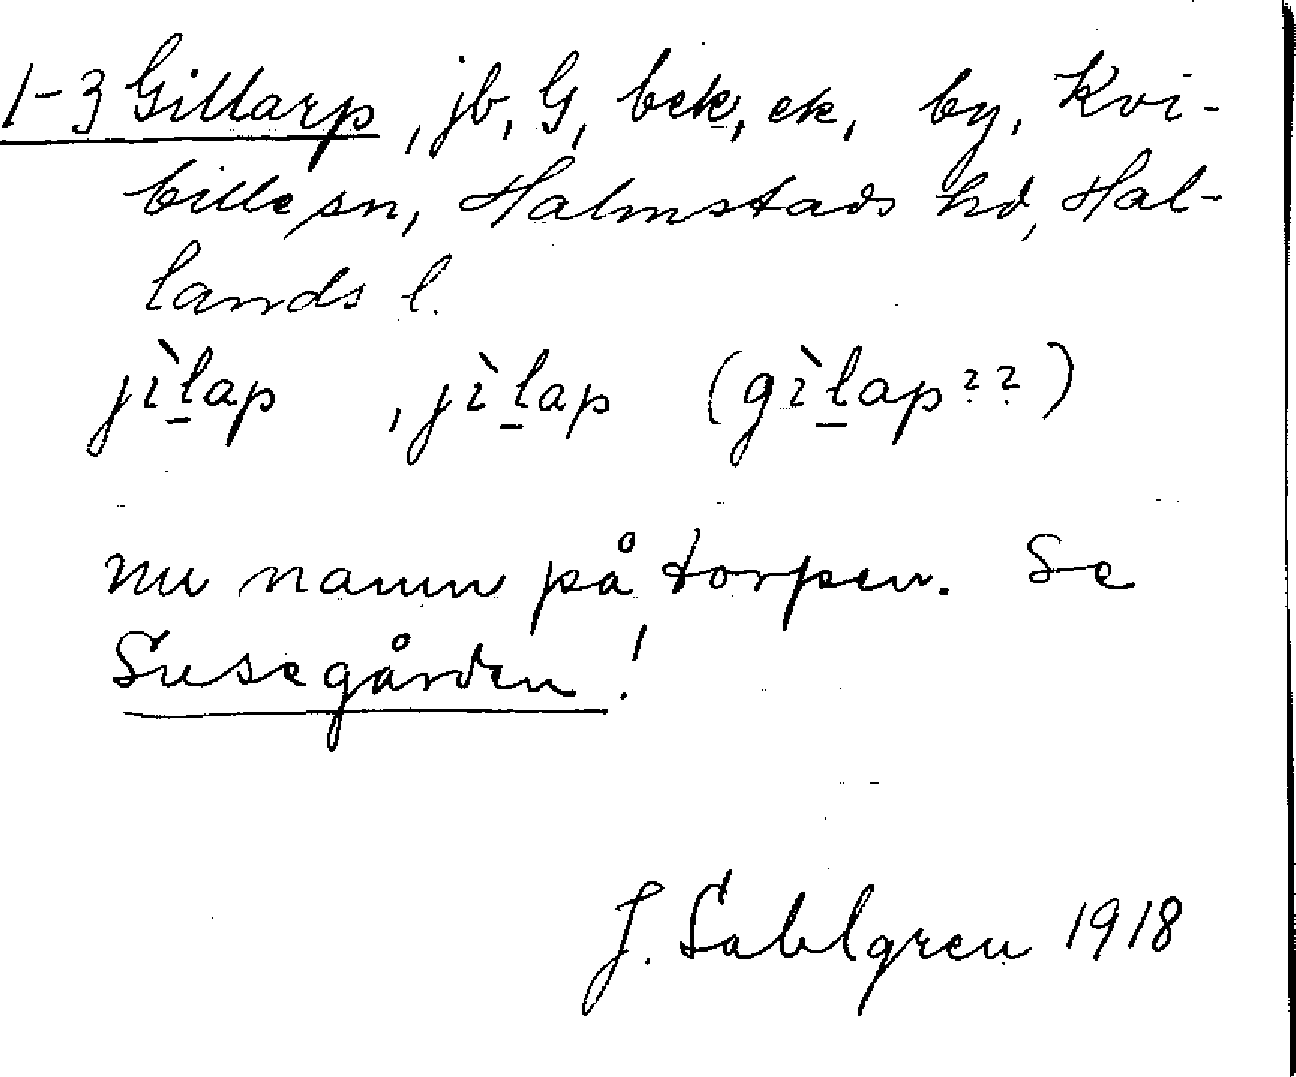 1-3 Gillarp, jb, G, bek, ek, by, Kvi-
bille sn, Halmstads hd, Hal-
lands l.
jìlap , jìlap (gìlap??)
nu namn på torpen. Se
Susegården!
J. Sahlgren 1918